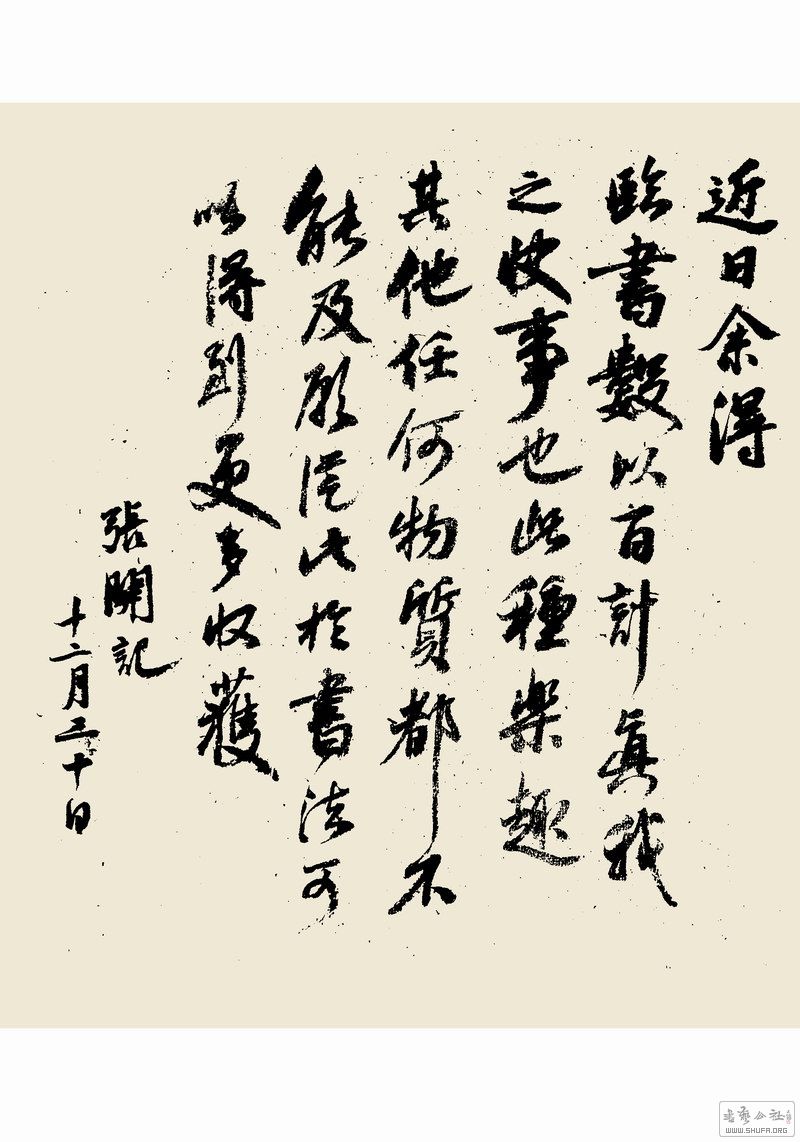 近日余得
臨書數以百計真我
之快事也此種樂趣
其他任何物質都不
能及願從此於書法可
以得到更多收獲
張開記
十二月三十日
書藝公社
WWW.SHUFA.ORG